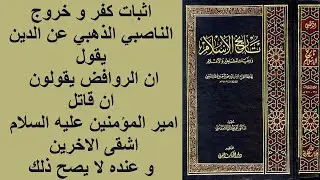 اثبات كفر و خروج
الناصبي الذهبي عن الدين
يقول
ان الروافض يقولون
ان قاتل
امير المؤمنين عليه السلام
اشقى الاخرين
و عنده لا يصح ذلك
تاريخ الإسلام